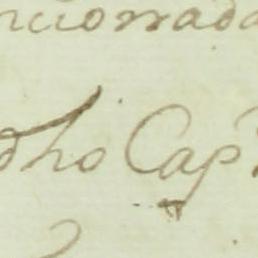 ncionada
dho Cap.